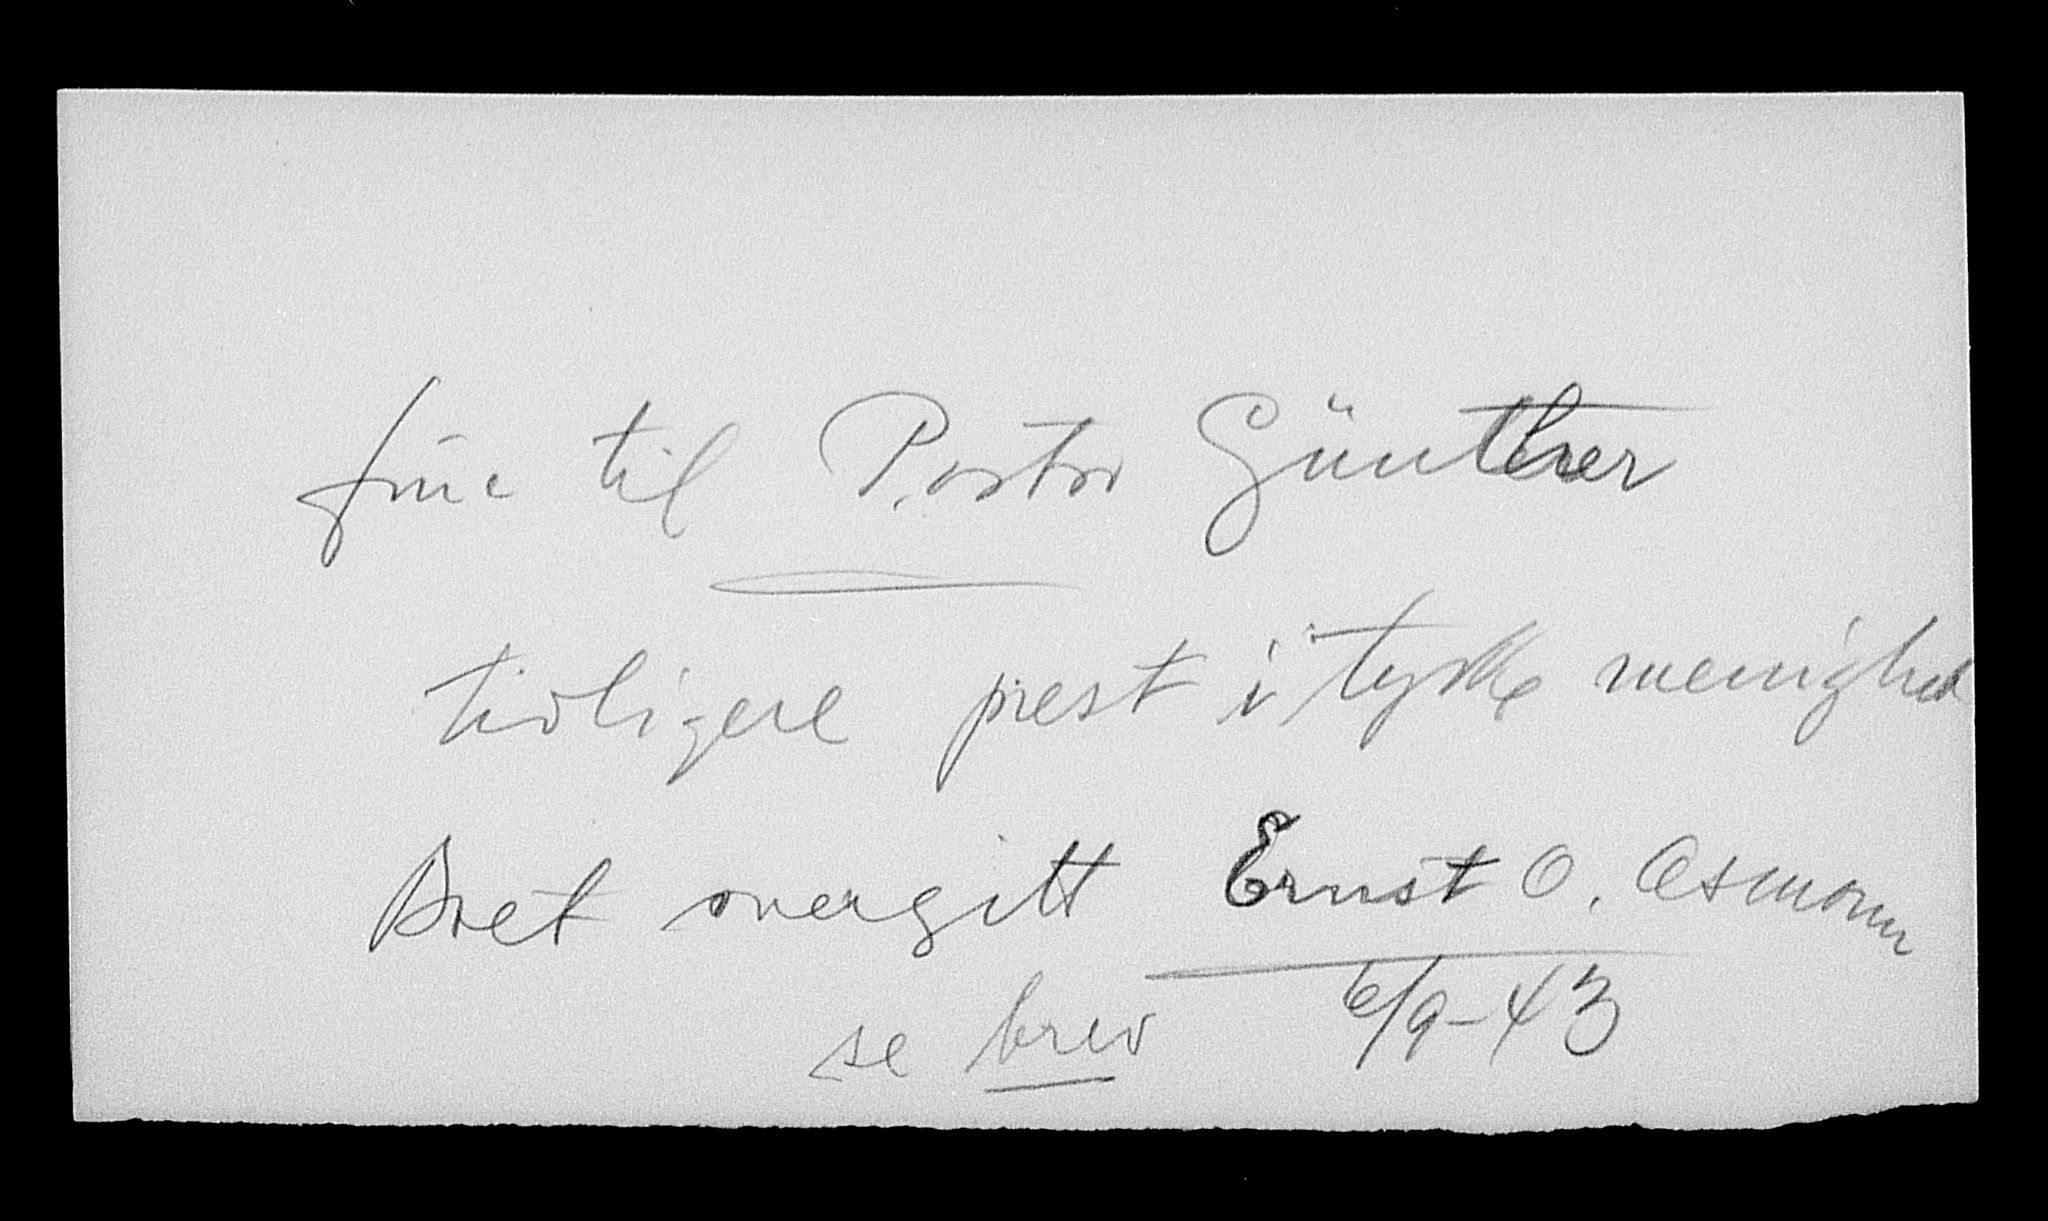 frue til Pastor Günther
tidligere prest i tyske menighet
Boet overgitt Ernst O. Asmann
se brev 6/9-43